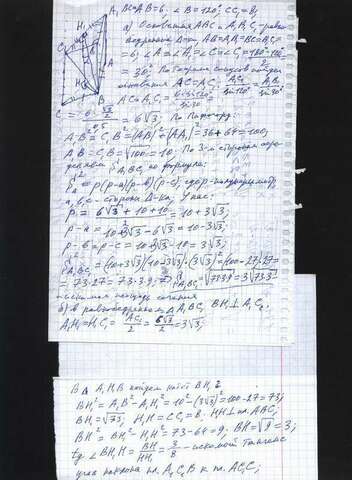 BC=AB=6. ∠B=120°, CC₁=8.
а) Основания ABC и A₁B₁C₁ – равно
бедренные Δ-ки AB=A₁B₁=BC=B₁C₁=
=6; ∠A=∠A₁=∠C=∠C₁=(180°-120°)/2=
=30°. По теореме синусов найдём
основания AC=A₁C₁
AC=A₁C₁=6·sin120°/sin30°
= 6√3; По Пифагору:
A₁B²=C₁B²=(AB)²+(AA₁)²=36+64=100;
A₁B=C₁B=√100=10. По 3-м сторонам
A₁BC₁ по формуле:
p(p-a)(p-b)(p-c), где p-полупериметр,
a,b,c - стороны Δ-ка, у нас:
p=(6√3+10+10)/2=10+3√3;
p-a=10+3√3-6√3=10-3√3;
p-b=p-c=10+3√3-10=3√3;
=(10+3√3)(10-3√3)(3√3)²=(100-27)·27=
=73·27=73·3·9
искомая площадь сечения
б) В равнобедренном Δ A₁BC₁ BH₁⊥A₁C₁.
A₁H₁=H₁C₁=AC/2=6√3/2=3√3;
В Δ A₁H₁B найдём катет BH₁
BH₁²=A₁B²-A₁H₁²=10²-(3√3)²=100-27=73;
BH₁=√73, H₁H=CC₁=8. HH₁⊥пл.ABC;
BH²=BH₁²-H₁H²=73-64=9. BH=√9=3;
tg∠BH₁H=BH/HH₁=3/8 - искомый тангенс
угла наклона пл. A₁C₁B к пл. AC₁C;